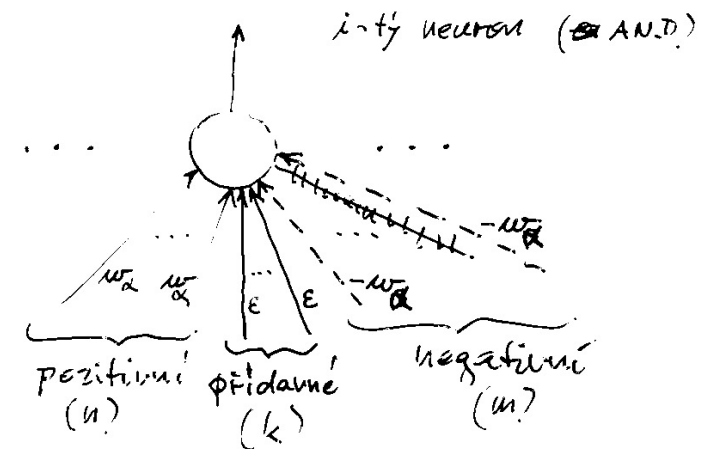 i-tý neuron (AND)
. . . . . .
-wα
... ...
wα wα ε ... ε -wα
pozitivní přídavné negativní
(n) (k) (m)